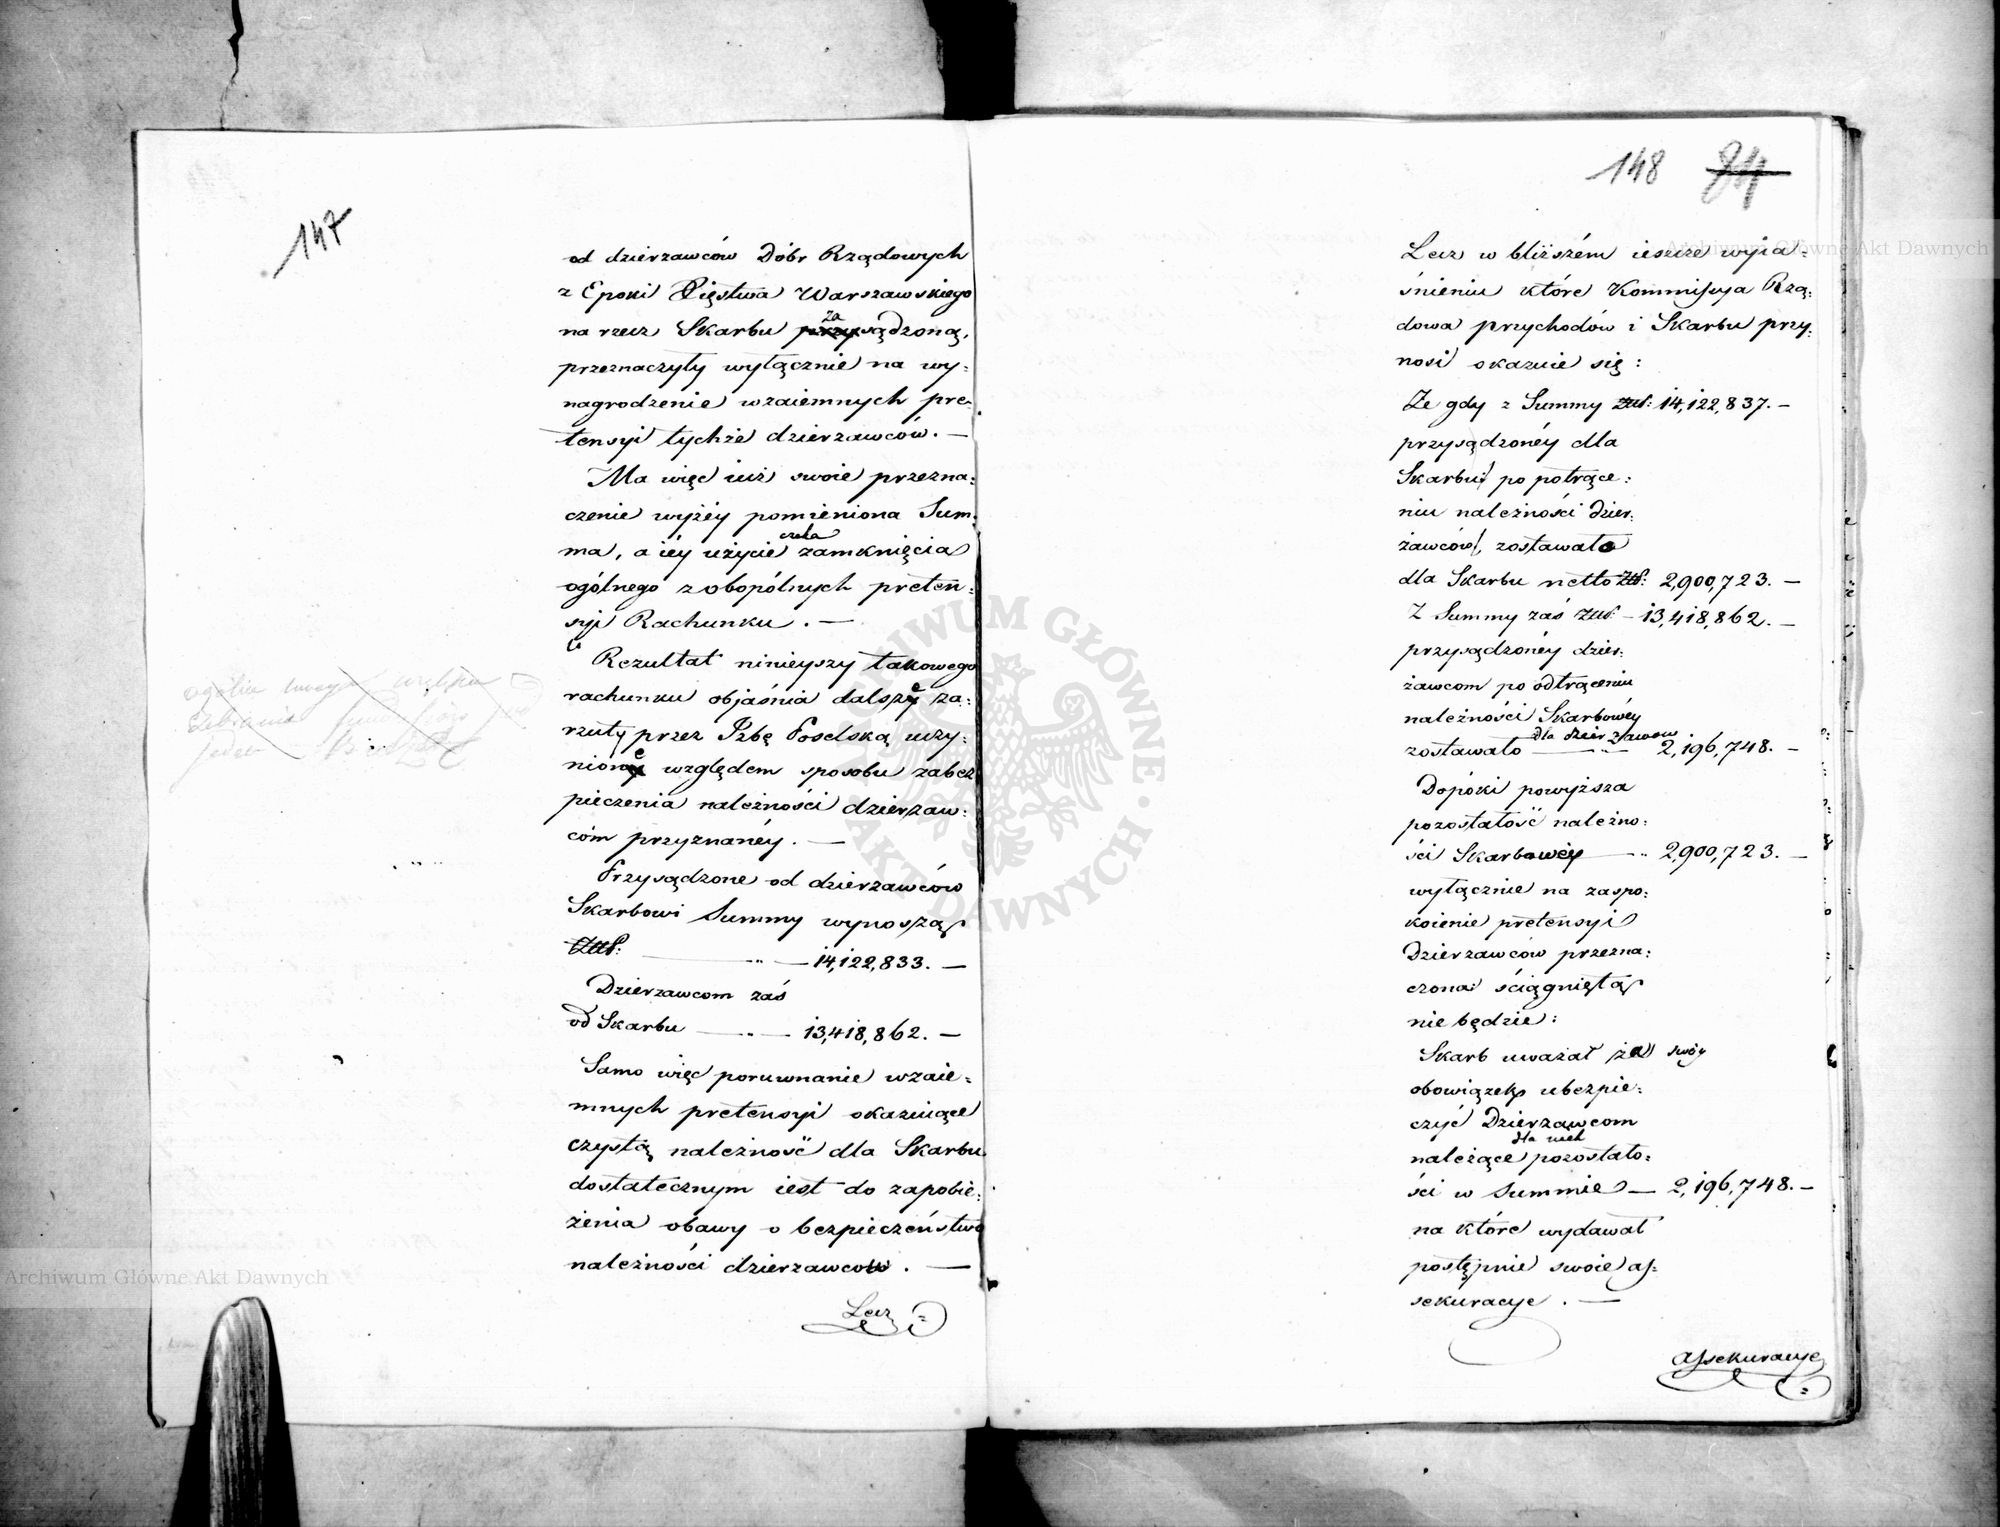 147
od dzierzawców Dóbr Rządowych
z Epoki Xięstwa Warszawskiego
za
na rzecz Skarbu przysądzoną,
przeznaczyły wyłącznie na wy=
nagrodzenie wzaiemnych pre=
tensyi tychże dzierzawców. —
Ma więc iuż swoie przezna=
czenie wyżéy pomieniona Sum=
czeka
ma, a iéy użycie zamknięcia
ogólnego z obopólnych preten=
syi Rachunku. —
Rezultat ninieyszy takowego
rachunku objaśnia dalsze za=
rzuty przez Izbę Poselską uczy=
nione względem sposobu zabez
pieczenia należności dzierzaw=
cóm przyznanéy. —
Przysądzone od dzierzawców
Skarbowi Summy wynoszą
Złł: — „ — 14,122,833. —
Dzierzawcom zaś
od Skarbu — „ — 13,418,862. —
Samo więc porównanie wzaie=
mnych pretensyi okazuiące
czystą należność dla Skarbu
dostatecznym iest do zapobie=
żenia obawy o bezpieczeństwo
należności dzierzawców. —
Lecz
148 84
Lecz w bliższém ieszcze wyia=
śnieniu które Kommissya Rzą=
dowa przychodów i Skarbu przy=
nosi okazuie się:
Że gdy z Summy Złł: 14,122,837. —
przysądzonéy dla
Skarbu po potrące=
niu należności dzier=
żawców, zostawało
dla Skarbu netto Złł: 2,900,723. —
Z Summy zaś Złł. — 13,418,862. —
przysądzonéy dzier=
żawcom po odtrąceniu
należności Skarbowéy
dla dzierzawców
zostawało — „ 2,196,748. —
Dopóki powyższa
pozostałość należno=
ści Skarbowéy — „ 2,900,723. —
wyłącznie na zaspo=
koienie pretensyi
Dzierzawców przezna=
czona ściągniętą
nie będzie:
Skarb uważał za swóy
obowiązek ubezpie=
czyć Dzierzawcom
dla nich
należące pozostało=
ści w Summie — 2,196,748. —
na które wydawał
postępnie swoie as=
sekuracye. —
assekuracye
Archiwum Główne Akt Dawnych
Archiwum Główne Akt Dawnych
ARCHIWUM GŁÓWNE AKT DAWNYCH